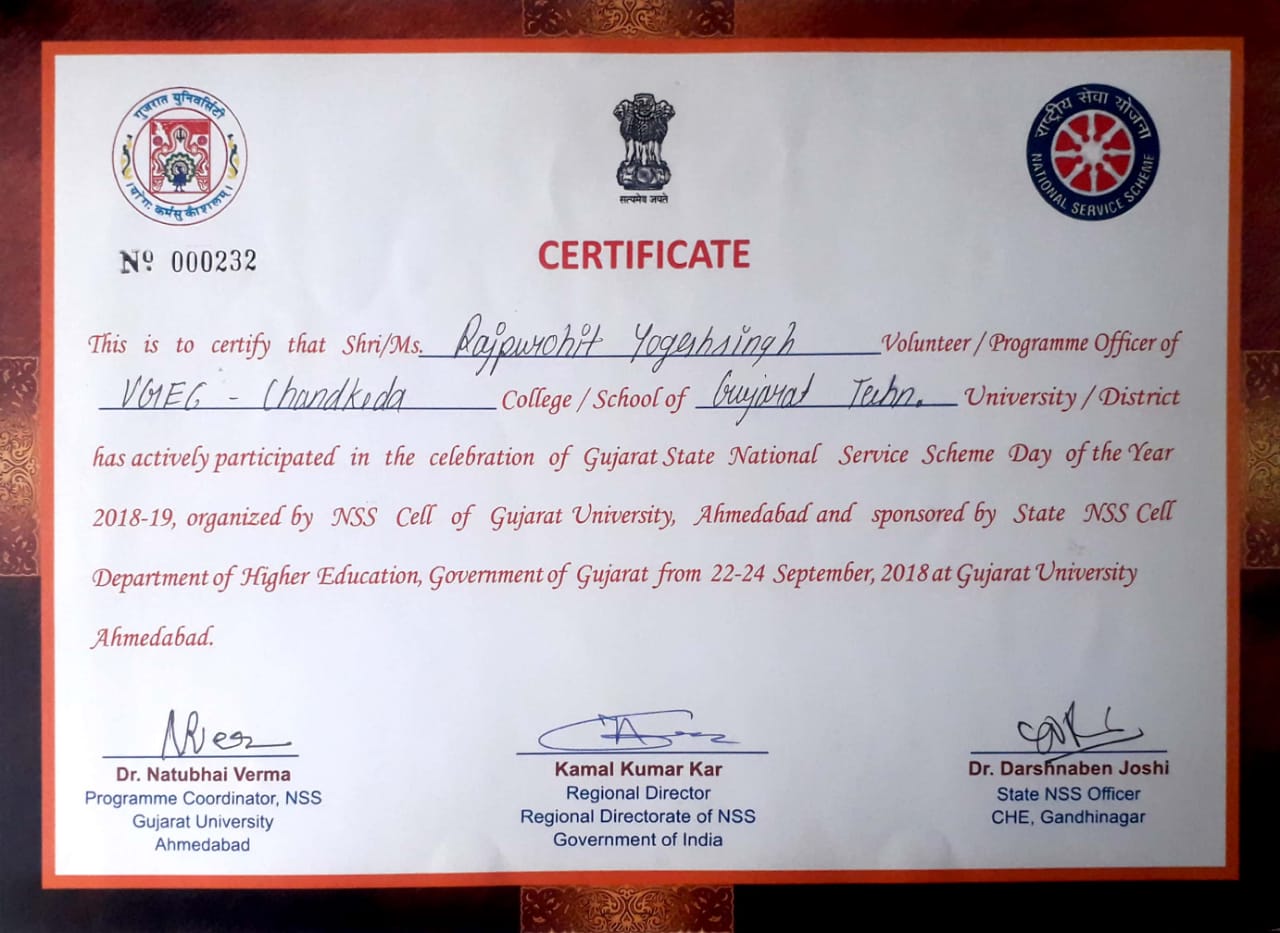 गुजरात युनिवर्सिटी
योगः कर्मसु कौशलम्
सत्यमेव जयते
राष्ट्रीय सेवा योजना
NATIONAL SERVICE SCHEME
Nº 000232
CERTIFICATE
This is to certify that Shri/Ms. Rajpurohit Yogeshsingh Volunteer / Programme Officer of
VGEC - Chandkeda College / School of Gujarat Techn. University / District
has actively participated in the celebration of Gujarat State National Service Scheme Day of the Year
2018-19, organized by NSS Cell of Gujarat University, Ahmedabad and sponsored by State NSS Cell
Department of Higher Education, Government of Gujarat from 22-24 September, 2018 at Gujarat University
Ahmedabad.
Dr. Natubhai Verma
Programme Coordinator, NSS
Gujarat University
Ahmedabad
Kamal Kumar Kar
Regional Director
Regional Directorate of NSS
Government of India
Dr. Darshnaben Joshi
State NSS Officer
CHE, Gandhinagar